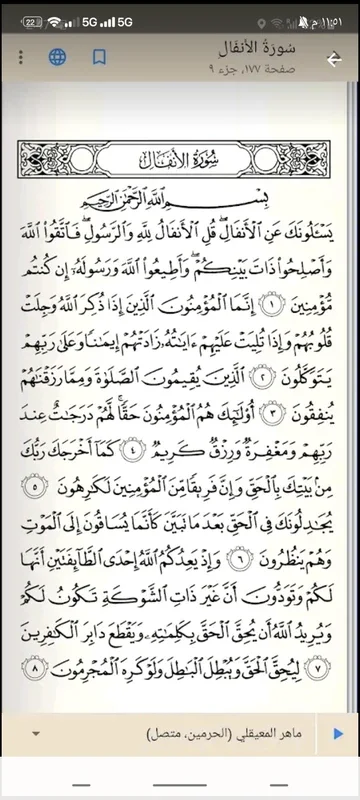 22 5G 5G ١١:٥١ م
سُورَةُ الأَنفَالِ
صفحة ١٧٧، جزء ٩
سُورَةُ الأَنفَالِ
بِسْمِ اللَّهِ الرَّحْمَٰنِ الرَّحِيمِ
يَسْـَٔلُونَكَ عَنِ الْأَنفَالِ ۖ قُلِ الْأَنفَالُ لِلَّهِ وَالرَّسُولِ ۖ فَاتَّقُوا۟ اللَّهَ
وَأَصْلِحُوا۟ ذَاتَ بَيْنِكُمْ ۖ وَأَطِيعُوا۟ اللَّهَ وَرَسُولَهُۥٓ إِن كُنتُم
مُّؤْمِنِينَ ١ إِنَّمَا الْمُؤْمِنُونَ الَّذِينَ إِذَا ذُكِرَ اللَّهُ وَجِلَتْ
قُلُوبُهُمْ وَإِذَا تُلِيَتْ عَلَيْهِمْ ءَايَٰتُهُۥ زَادَتْهُمْ إِيمَٰنًا وَعَلَىٰ رَبِّهِمْ
يَتَوَكَّلُونَ ٢ الَّذِينَ يُقِيمُونَ الصَّلَوٰةَ وَمِمَّا رَزَقْنَٰهُمْ
يُنفِقُونَ ٣ أُو۟لَٰٓئِكَ هُمُ الْمُؤْمِنُونَ حَقًّا ۚ لَّهُمْ دَرَجَٰتٌ عِندَ
رَبِّهِمْ وَمَغْفِرَةٌ وَرِزْقٌ كَرِيمٌ ٤ كَمَآ أَخْرَجَكَ رَبُّكَ
مِنۢ بَيْتِكَ بِالْحَقِّ وَإِنَّ فَرِيقًا مِّنَ الْمُؤْمِنِينَ لَكَٰرِهُونَ ٥
يُجَٰدِلُونَكَ فِى الْحَقِّ بَعْدَمَا تَبَيَّنَ كَأَنَّمَا يُسَاقُونَ إِلَى الْمَوْتِ
وَهُمْ يَنظُرُونَ ٦ وَإِذْ يَعِدُكُمُ اللَّهُ إِحْدَى الطَّآئِفَتَيْنِ أَنَّهَا
لَكُمْ وَتَوَدُّونَ أَنَّ غَيْرَ ذَاتِ الشَّوْكَةِ تَكُونُ لَكُمْ
وَيُرِيدُ اللَّهُ أَن يُحِقَّ الْحَقَّ بِكَلِمَٰتِهِۦ وَيَقْطَعَ دَابِرَ الْكَٰفِرِينَ
٧ لِيُحِقَّ الْحَقَّ وَيُبْطِلَ الْبَٰطِلَ وَلَوْ كَرِهَ الْمُجْرِمُونَ ٨
ماهر المعيقلي (الحرمين، متصل)